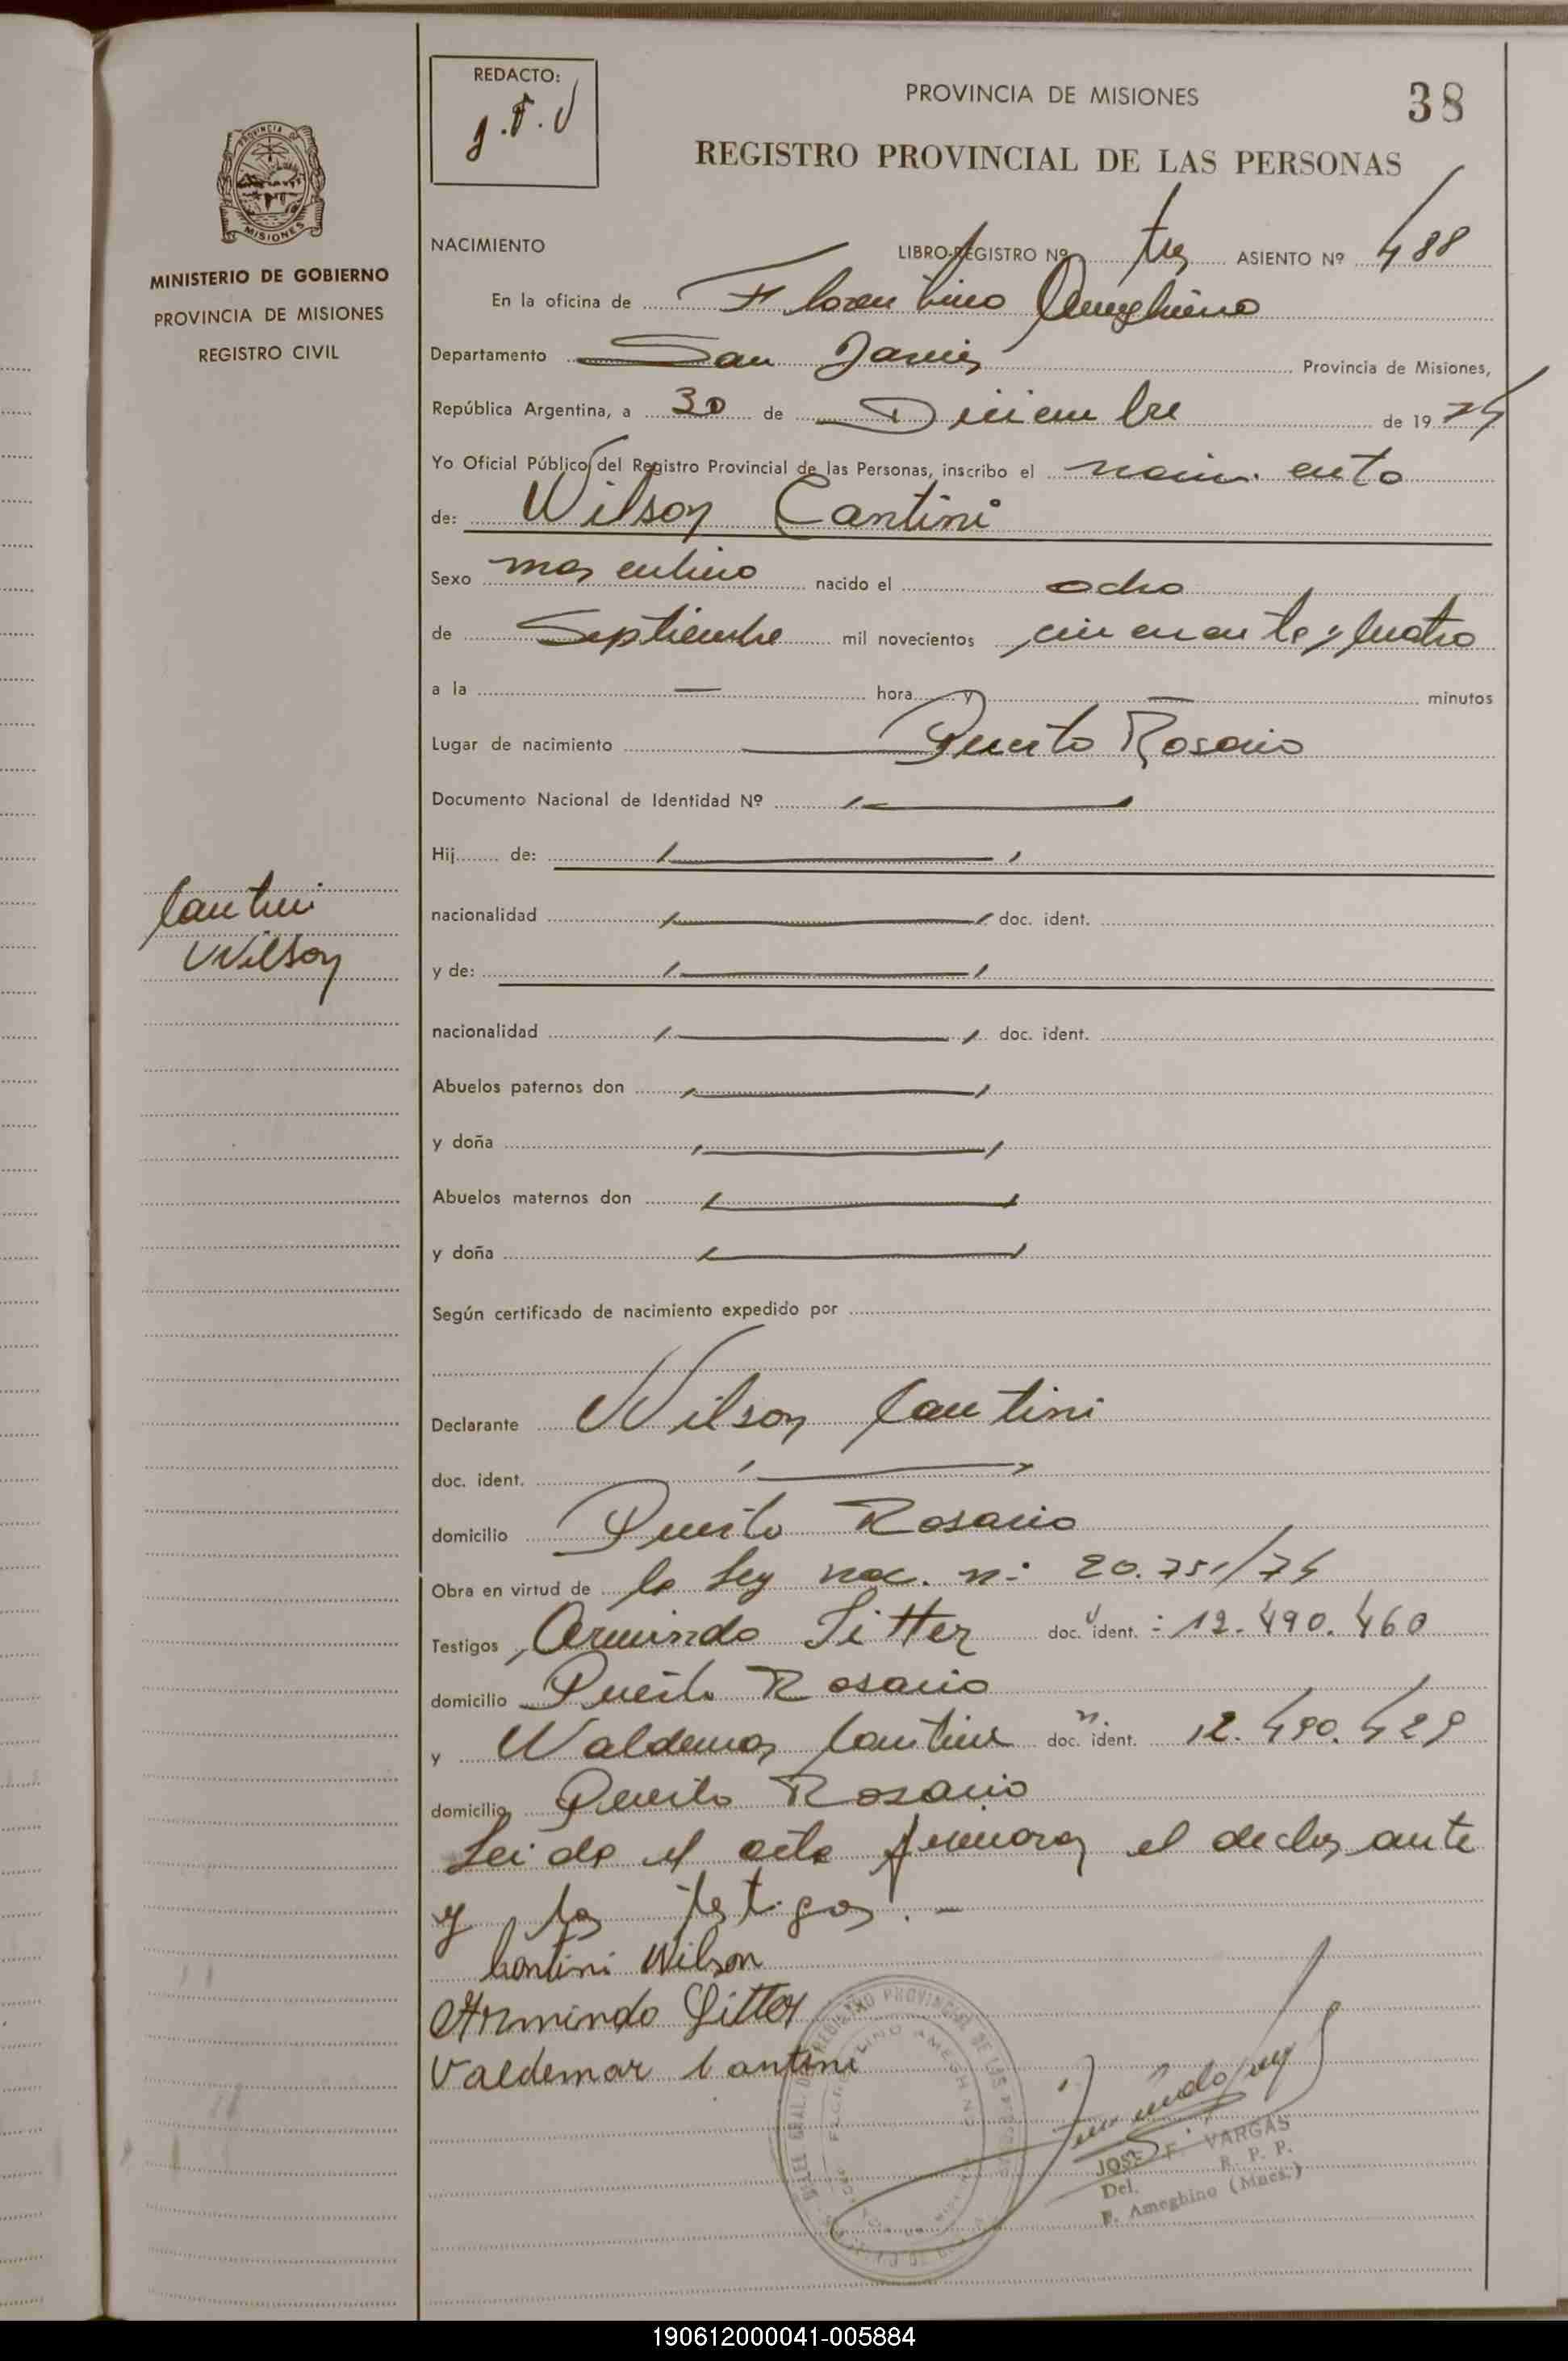 REDACTO:
J.F.V
PROVINCIA DE MISIONES
38
REGISTRO PROVINCIAL DE LAS PERSONAS
PROVINCIA DE MISIONES
MINISTERIO DE GOBIERNO
PROVINCIA DE MISIONES
REGISTRO CIVIL
NACIMIENTO LIBRO-REGISTRO Nº tres ASIENTO Nº 488
En la oficina de Florentino Ameghino
Departamento San Javier Provincia de Misiones,
República Argentina, a 30 de Diciembre de 1974
Yo Oficial Público del Registro Provincial de las Personas, inscribo el nacimiento
de: Wilson Cantini
Sexo masculino nacido el ocho
de Septiembre mil novecientos cincuenta y cuatro
a la — hora y — minutos
Lugar de nacimiento Puerto Rosario
Documento Nacional de Identidad Nº
Hij de:
Cantini
Wilson
nacionalidad doc. ident.
y de:
nacionalidad doc. ident.
Abuelos paternos don
y doña
Abuelos maternos don
y doña
Según certificado de nacimiento expedido por
Declarante Wilson Cantini
doc. ident.
domicilio Puerto Rosario
Obra en virtud de la Ley nac. nº 20.751/74
Testigos Armindo Sitter doc. ident. 12.490.460
domicilio Puerto Rosario
y Waldemar Cantini doc. ident. 12.490.429
domicilio Puerto Rosario
Leida el acta firmaron el declarante
y los testigos.-
Cantini Wilson
Armindo Sitter
Valdemar Cantini
JOSE F. VARGAS
Del. R. P. P.
F. Ameghino (Mnes.)
190612000041-005884